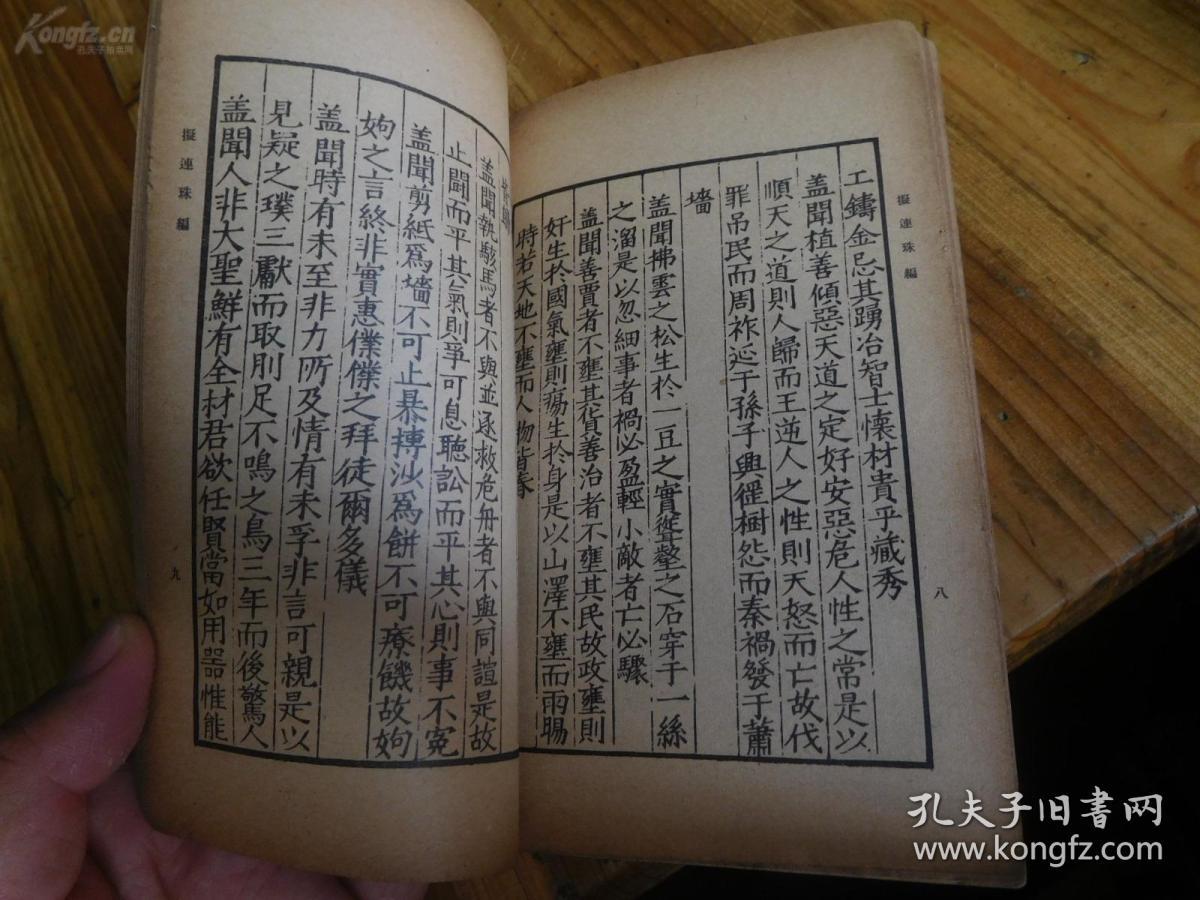 Kongfz.cn
孔夫子拍卖网
擬連珠編
八
工鑄金忌其踴冶智士懷材貴乎藏秀
盖聞植善傾惡天道之定好安惡危人性之常是以
順天之道則人歸而王逆人之性則天怒而亡故伐
罪吊民而周祚延于孫子興徭橱怨而秦禍發于蕭
墻
盖聞拂雲之松生於一豆之實聳壑之石穿于一絲
之溜是以忽細事者禍必盈輕小敵者亡必驟
盖聞善賈者不壅其貨善治者不壅其民故政壅則
奸生於國氣壅則瘍生於身是以山澤不壅而雨暘
時若天地不壅而人物皆春
盖聞執駭馬者不與並逐救危舟者不與同諠是故
止鬪而平其氣則爭可息聽訟而平其心則事不冤
盖聞剪紙爲墻不可止暴摶沙爲餅不可療饑故姁
姁之言終非實惠僕僕之拜徒爾多儀
盖聞時有未至非力所及情有未孚非言可親是以
見疑之璞三獻而取刖足不鳴之鳥三年而後驚人
盖聞人非大聖鮮有全材君欲任賢當如用器惟能
擬連珠編
九
孔夫子旧书网
www.kongfz.com